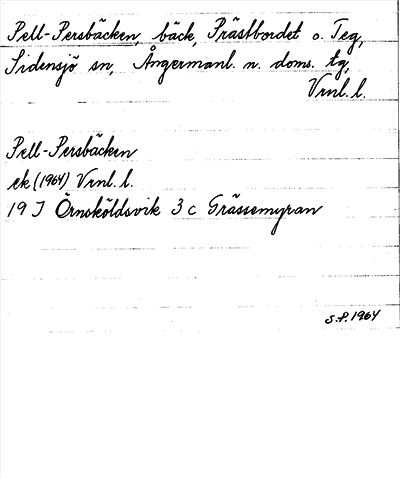 Pell-Persbäcken, bäck, Prästbordet o. Teg,
Sidensjö sn, Ångermanl. n. doms. tg,
Vrnl. l.
Pell-Persbäcken
ek (1964) Vrnl. l.
19 J Örnsköldsvik 3 c Grässemyran
S.P. 1964